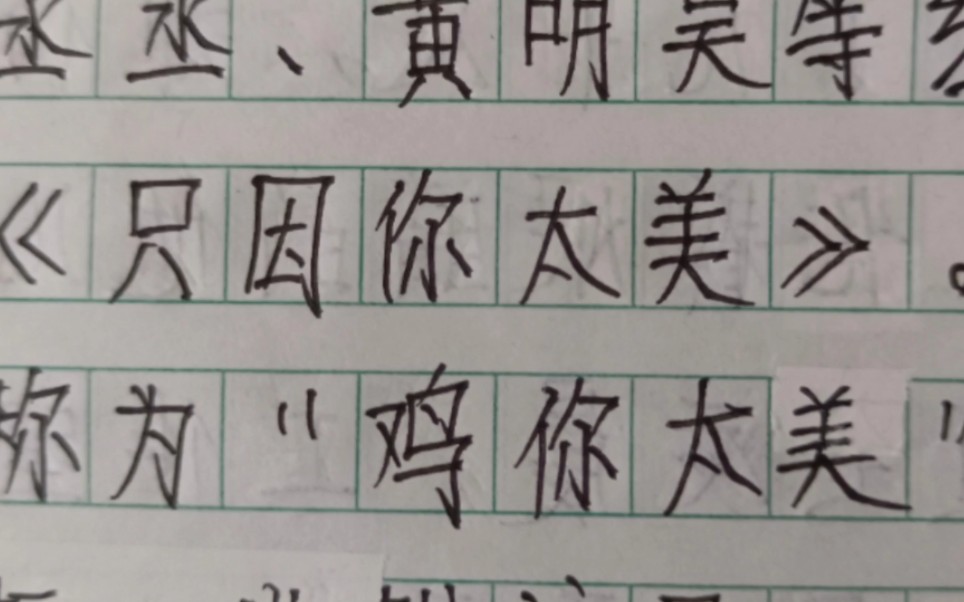 丞丞、黄明昊等
《只因你太美》。
称为“鸡你太美”